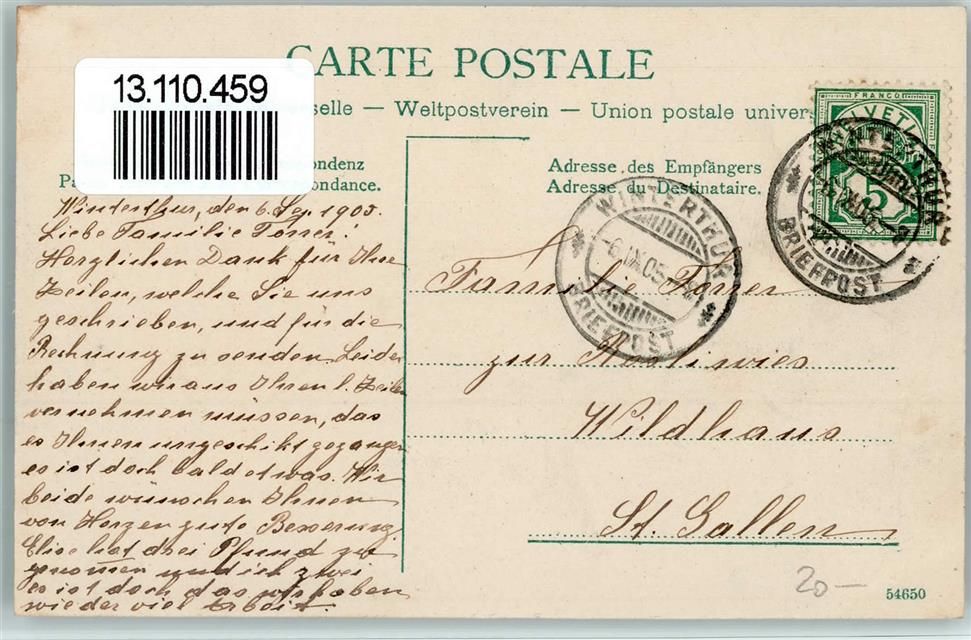 CARTE POSTALE
13.110.459
selle — Weltpostverein — Union postale univers
FRANCO
HELVETIA
5
WINTERTHUR
BRIEFPOST
ondenz
Pa
ondance.
Adresse des Empfängers
Adresse du Destinataire.
WINTERTHUR
-6.IX.05
BRIEFPOST
Winterthur, den 6. Sep. 1905.
Liebe Familie Forrer!
Herzlichen Dank für Ihre
Zeilen, welche Sie uns
geschrieben, und für die
Rechnung zu senden. Leider
haben wir aus Ihren l. Zeilen
vernehmen müssen, das
es Ihnen ungeschikt gegangen
es ist doch bald etwas. Wir
beide wünschen Ihnen
von Herzen gute Besserung.
Elise hat drei Pfund zu
genomen und ich zwei
es ist doch das wir haben
wieder viel Arbeit.
Familie Forrer
zur
Wildhaus
St. Gallen
20-
54650